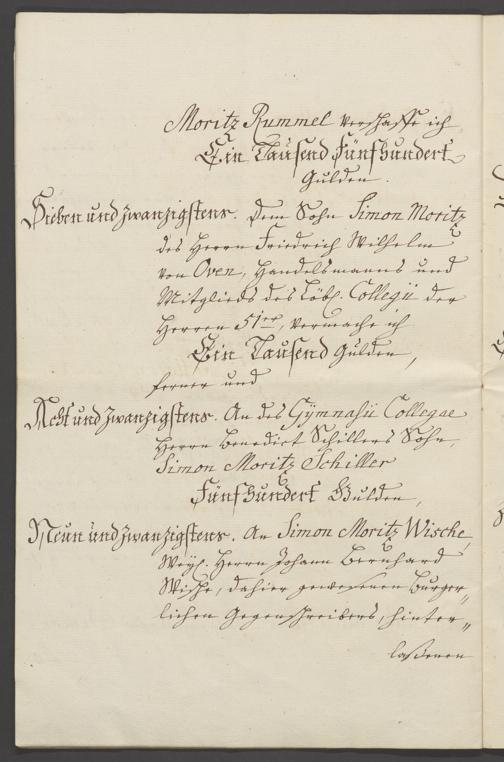 Moritz Rummel verschaffe ich
Ein Tausend Fünfhundert
Gulden.
Sieben und zwanzigstens. Dem Sohn Simon Moritz
des Herrn Friedrich Wilhelm
von Oven, Handelsmanns und
Mitglieds des Löbl. Collegii der
Herren 51er, vermache ich
Ein Tausend Gulden,
ferner und
Acht und zwanzigstens. An des Gÿmnasii Collegae
Herrn Benedict Schillers Sohn,
Simon Moritz Schiller
Fünfhundert Gulden,
Neun und zwanzigstens. An Simon Moritz Wische,
Weyl. Herrn Johann Bernhard
Wische, dahier gewesenen Burger„
lichen Gegenschreibers, hinter„
laßenen